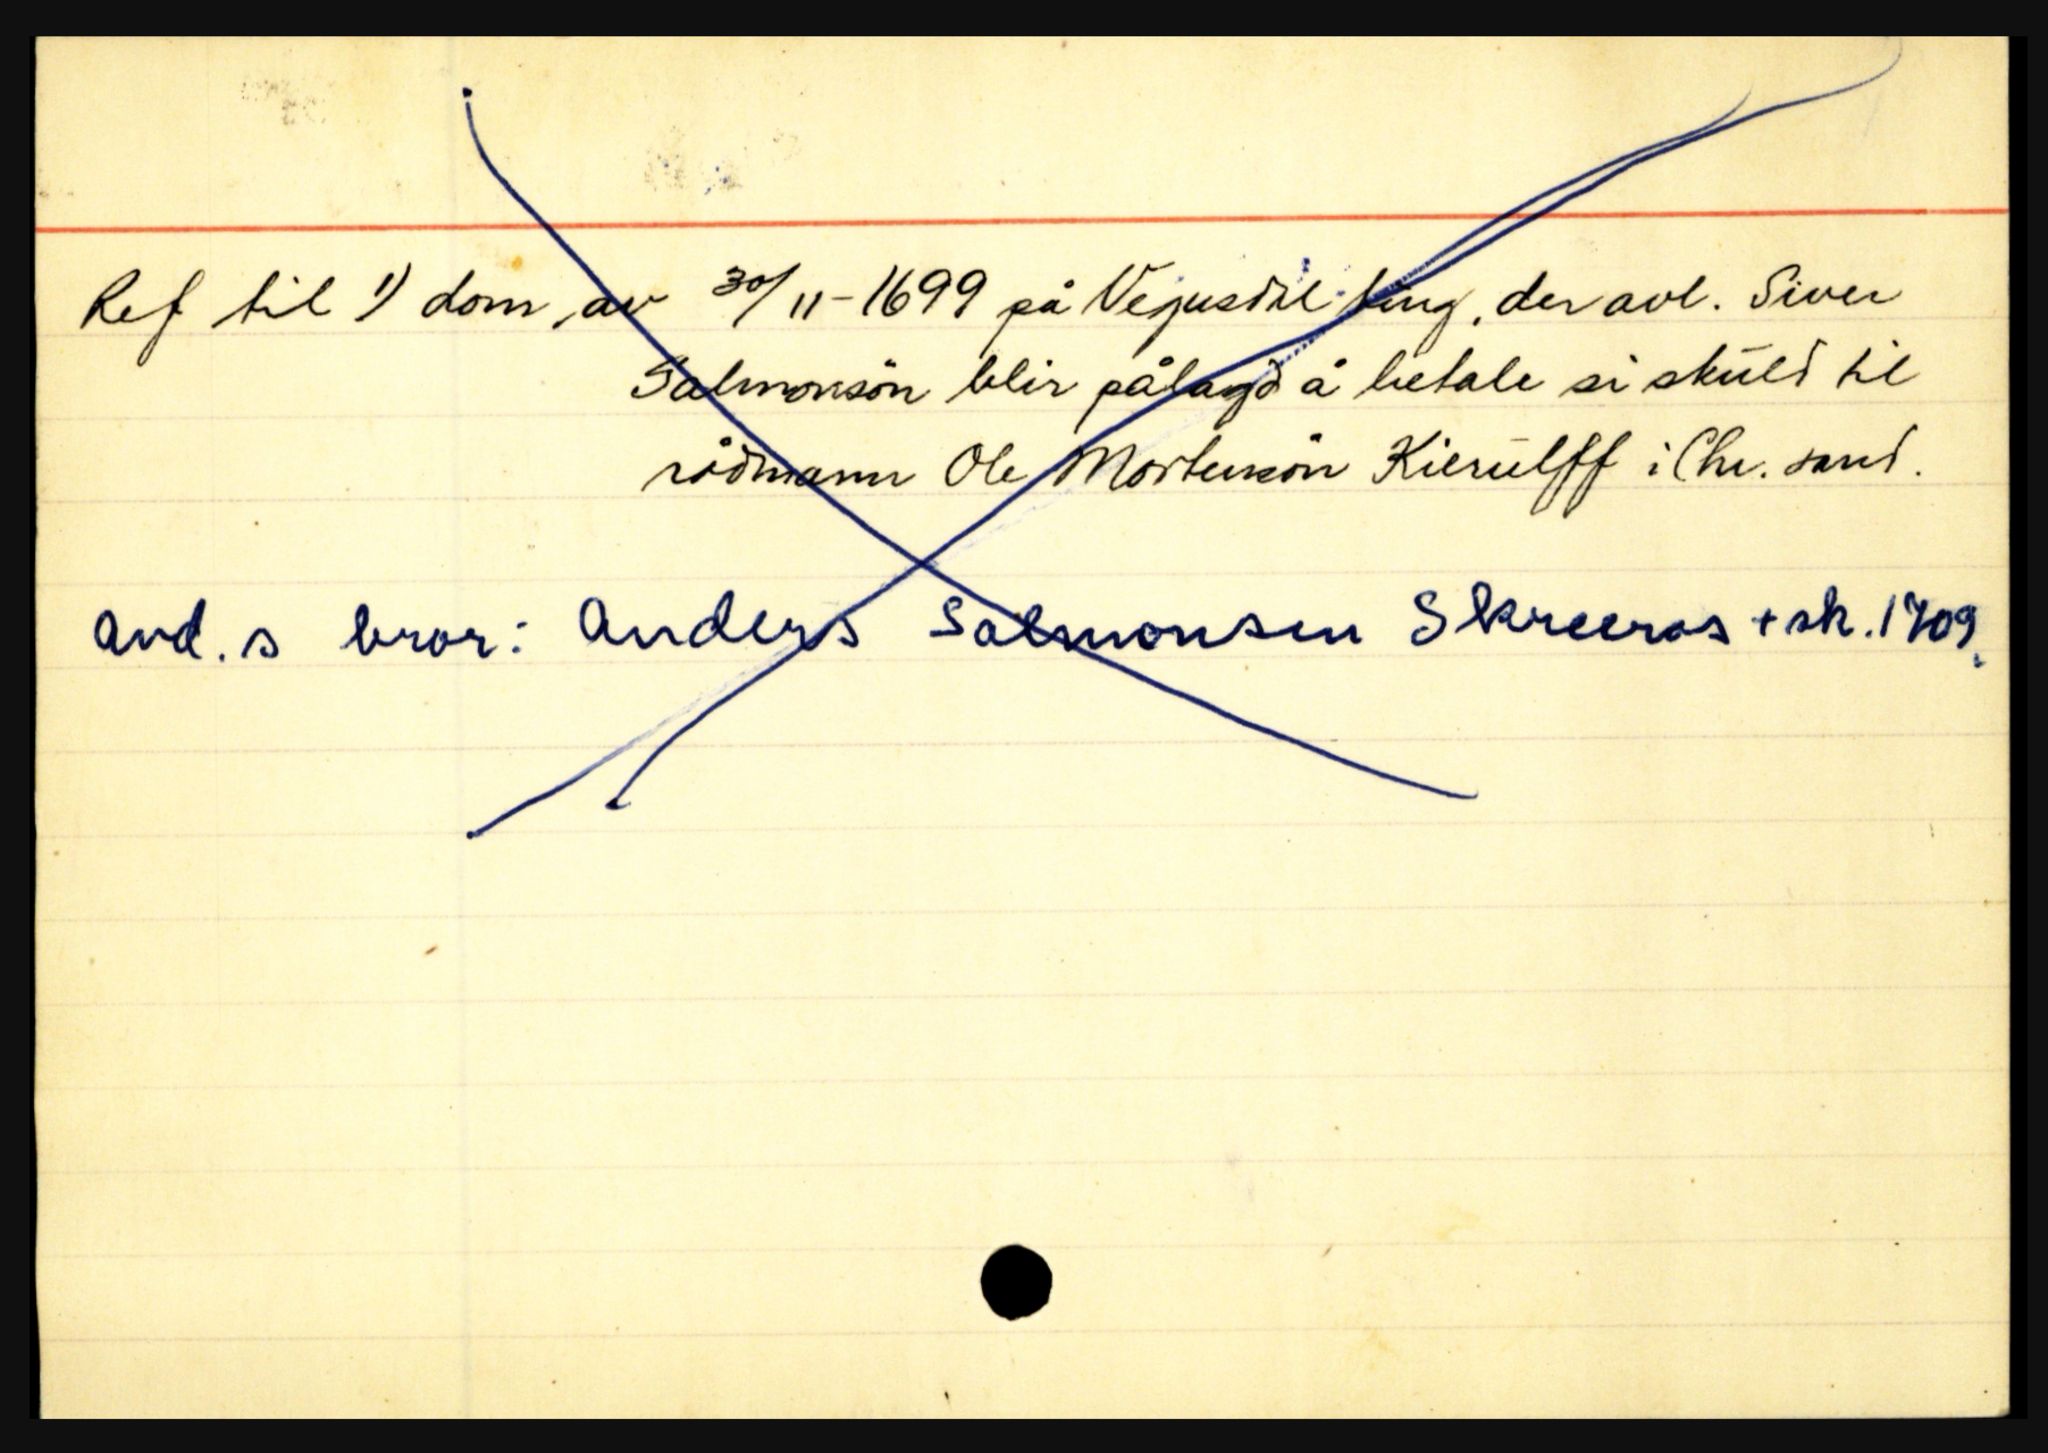 Ref til 1) dom av 30/11-1699 på Vegusdal ting, der avl. Siver
Salmonsön blir pålagd å betale si skŭld til
rådmann Ole Mortensön Kierŭlff i Chr. sand.
avd. s bror: Anders Salmonsen Skreeros + sk. 1709.